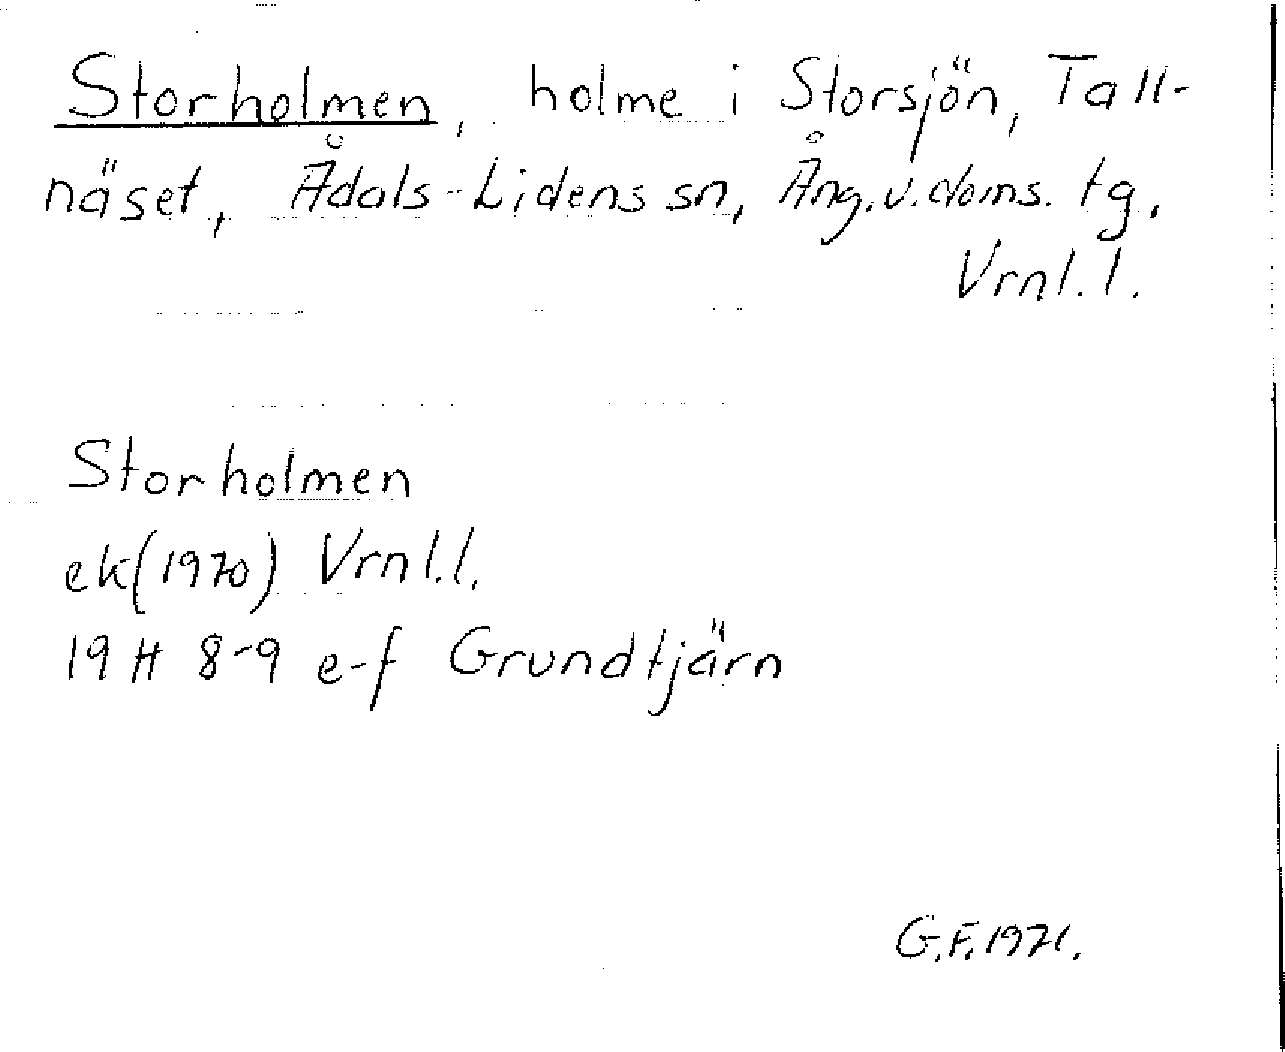 Storholmen, holme i Storsjön, Tall-
näset, Ådals-Lidens sn, Ång.v.doms. tg.
Vrnl.l.
Storholmen
ek(1970) Vrnl.l.
19 H 8-9 e-f Grundtjärn
G.F.1971.